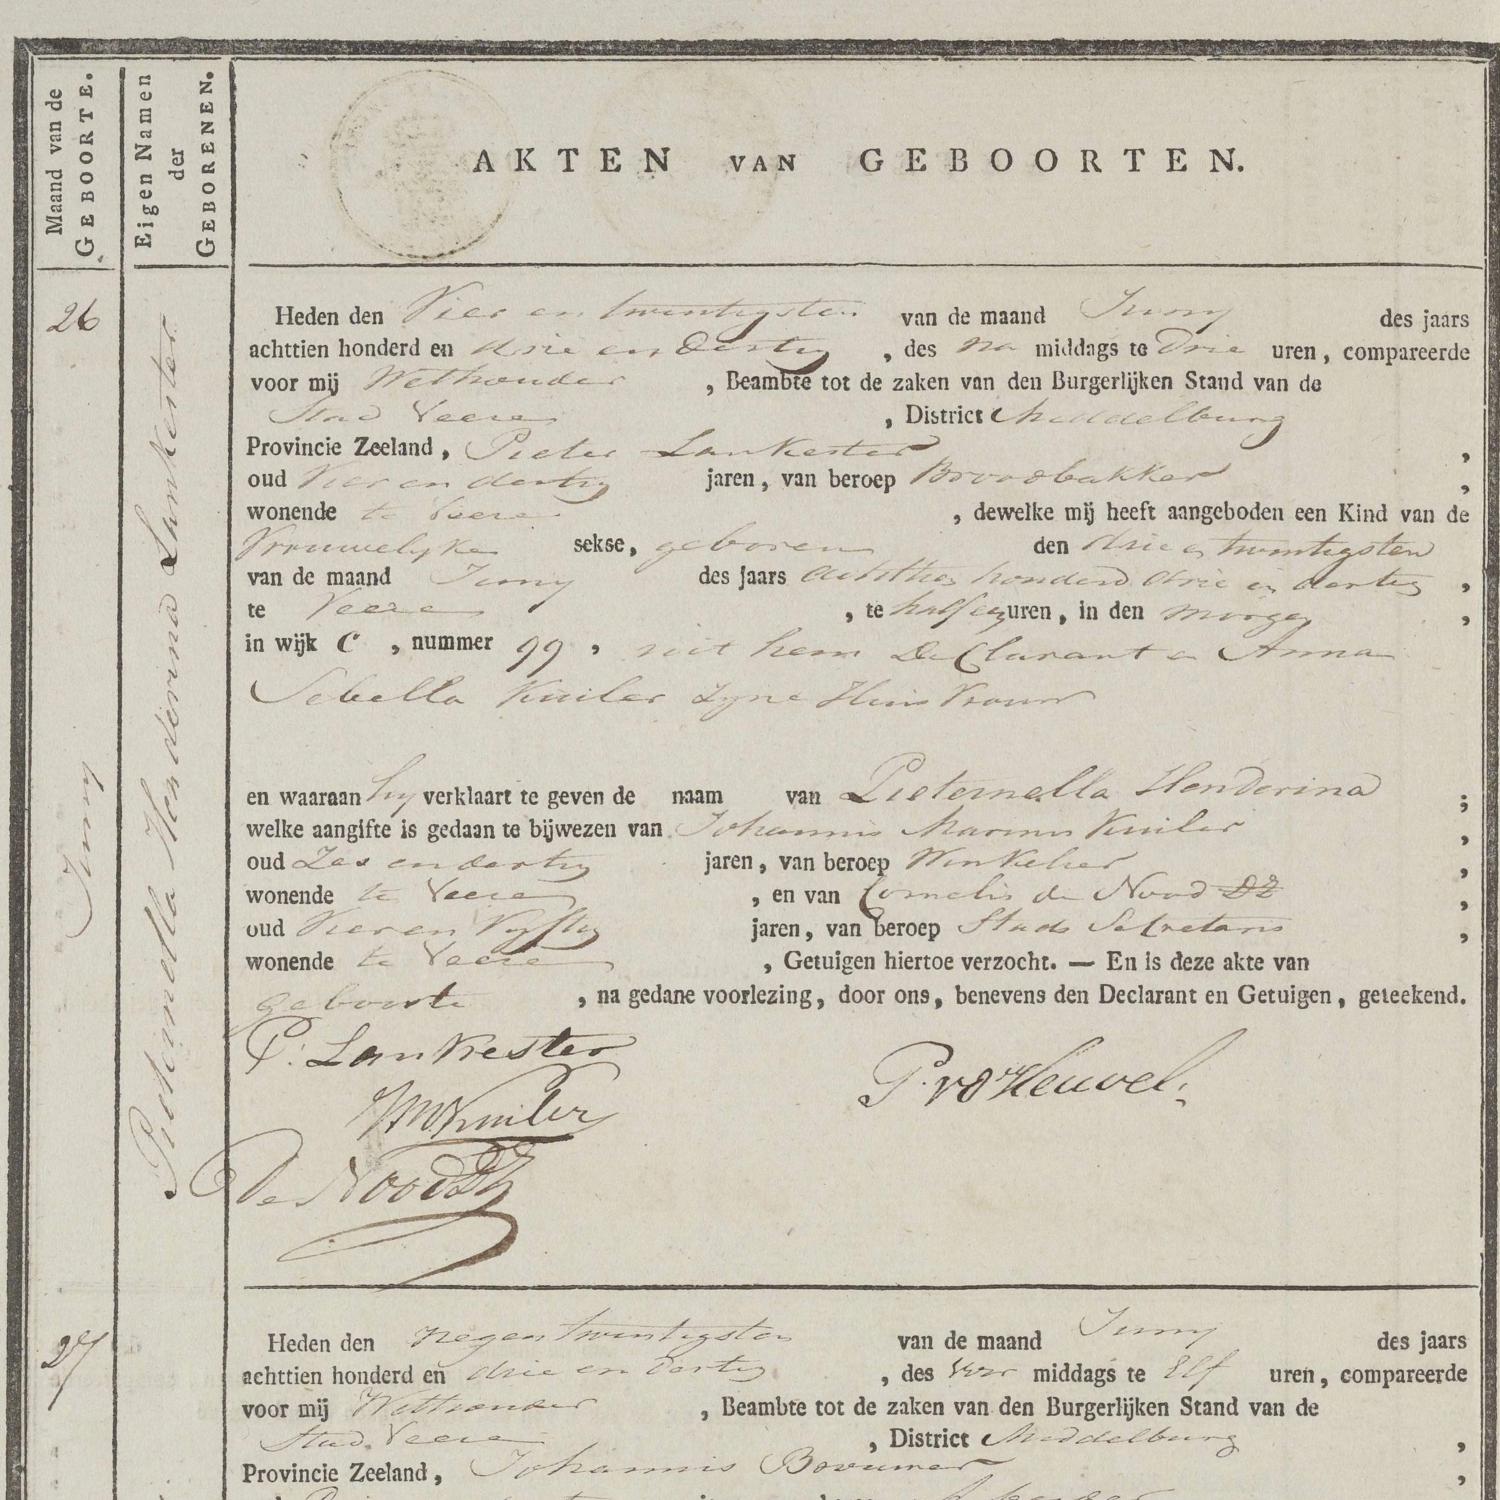 Maand van de
GEBOORTE.
Eigen Namen
der
GEBORENEN.
AKTEN VAN GEBOORTEN.
26
Juny
Pieternella Henderina Lankester
Heden den Vier en twintigsten van de maand Juny des jaars
achttien honderd en drie en dertig, des na middags te drie uren, compareerde
voor mij Wethouder, Beambte tot de zaken van den Burgerlijken Stand van de
Stad Veere, District Middelburg
Provincie Zeeland, Pieter Lankester,
oud Vier en dertig jaren, van beroep Broodbakker,
wonende te Veere, dewelke mij heeft aangeboden een Kind van de
Vrouwelyke sekse, geboren den drie en twintigsten
van de maand Juny des jaars achttien honderd drie en dertig,
te Veere, te half uren, in den morgen,
in wijk C, nummer 99, uit hem Declarant en Anna
Sebella Kuiler Zyne Huisvrouw
en waaraan hy verklaart te geven de naam van Pieternella Henderina;
welke aangifte is gedaan te bijwezen van Johannis Marinus Kuiler,
oud Zes en dertig jaren, van beroep Winkelier,
wonende te Veere, en van Cornelis de Nood DZ,
oud Vier en Vyftig jaren, van beroep Stads Secretaris,
wonende te Veere, Getuigen hiertoe verzocht. — En is deze akte van
geboorte, na gedane voorlezing, door ons, benevens den Declarant en Getuigen, geteekend.
P. Lankester
P. vd Heuvel.
JM Kuiler
De Nood DZ
27
Heden den negen twintigsten van de maand Juny des jaars
achttien honderd en drie en dertig, des voor middags te Elf uren, compareerde
voor mij Wethouder, Beambte tot de zaken van den Burgerlijken Stand van de
Stad Veere, District Middelburg,
Provincie Zeeland, Johannis,